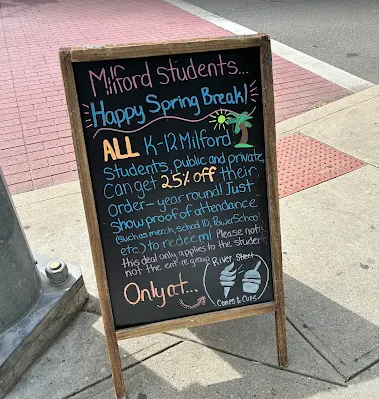 Milford Students...
Happy Spring Break!
ALL K-12 Milford
Students, public and private,
Can get 25% off their
order - year round! Just
show proof of attendance
(Such as merch, school ID, PowerSchool,
etc.) to redeem! Please note
this deal only applies to the student
not the entire group
Only at...
River Street
Cones & Cups